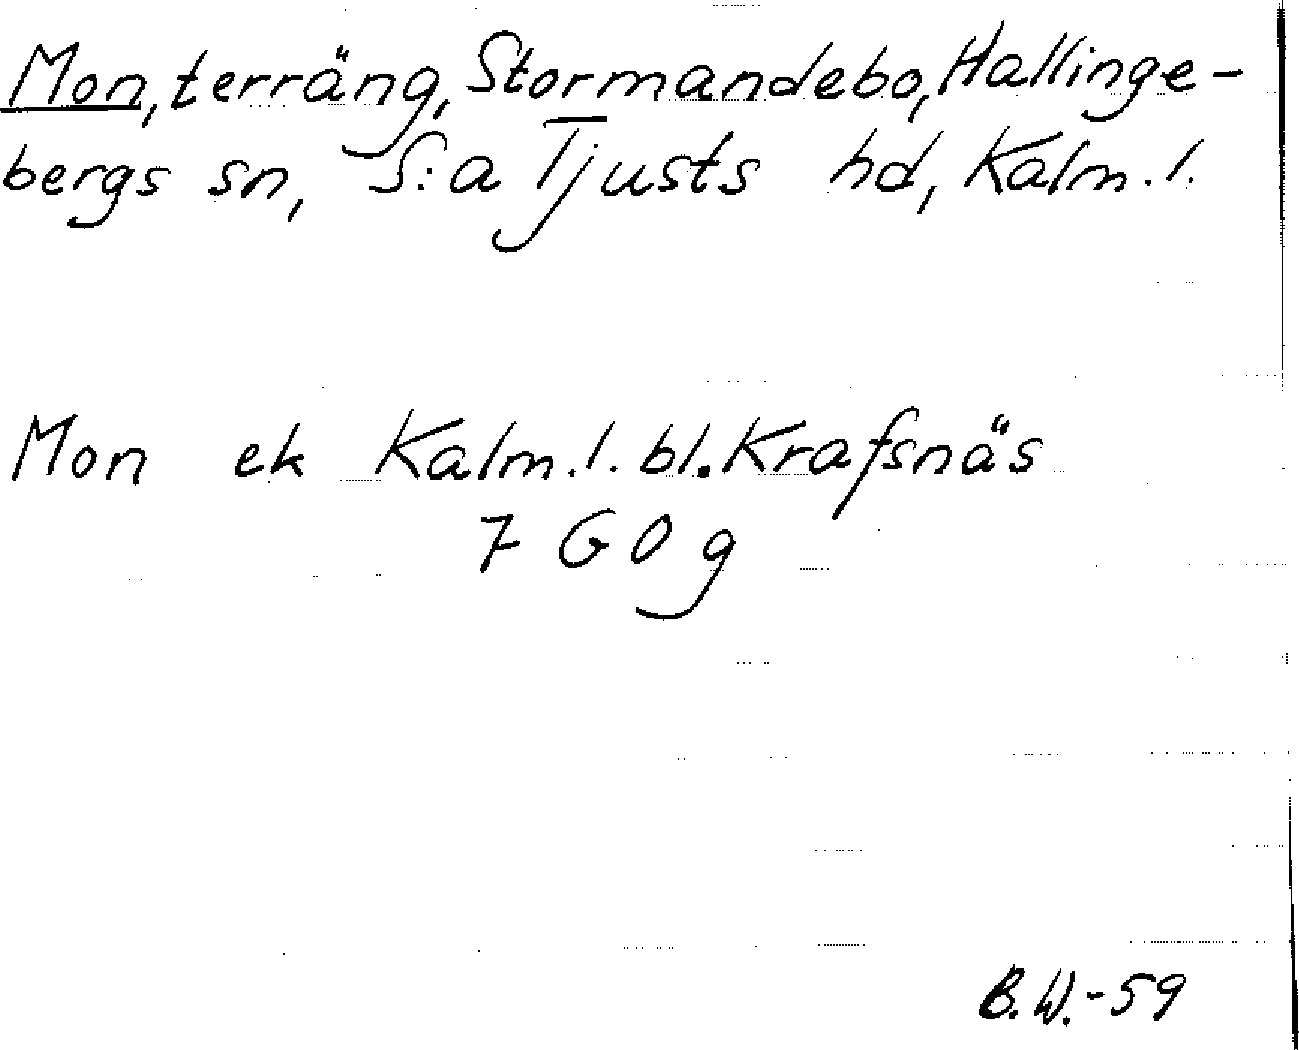 Mon, terräng, Stormandebo, Hallinge-
bergs sn, S:a Tjusts hd, Kalm. l.
Mon ek Kalm. l. bl. Krafsnäs
7 G 0 g
B.W.-59